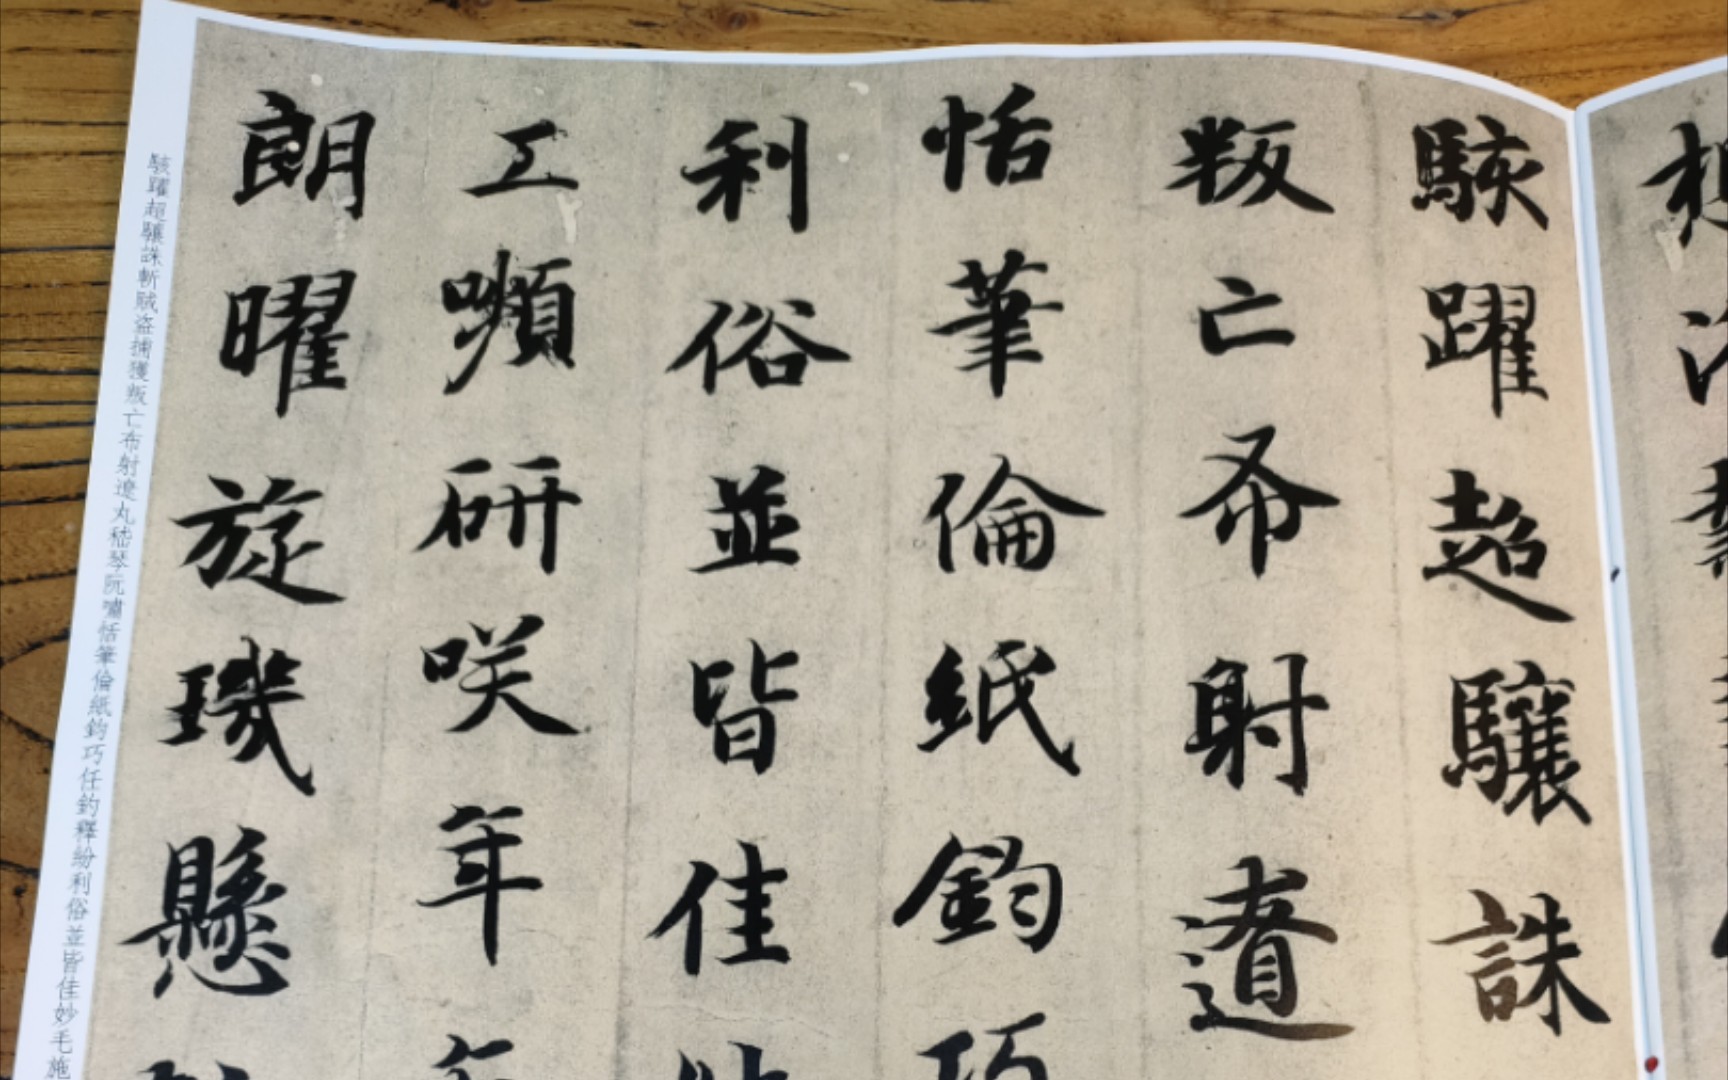 駭躍超驤誅
叛亡布射遼
恬筆倫紙鈞巧
利俗並皆佳妙
工嚬研咲年
朗曜旋璣懸
駭躍超驤誅斬賊盗捕獲叛亡布射遼丸嵇琴阮嘯恬筆倫紙鈞巧任釣釋紛利俗並皆佳妙毛施